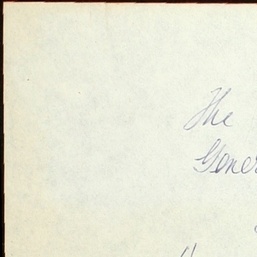 The
Gener